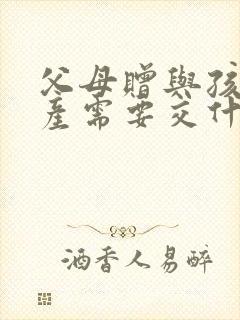 父母贈與孩
產需要交什
酒香人易醉